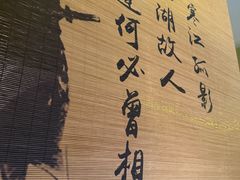 寒江孤影
湖故人
逢何必曾相